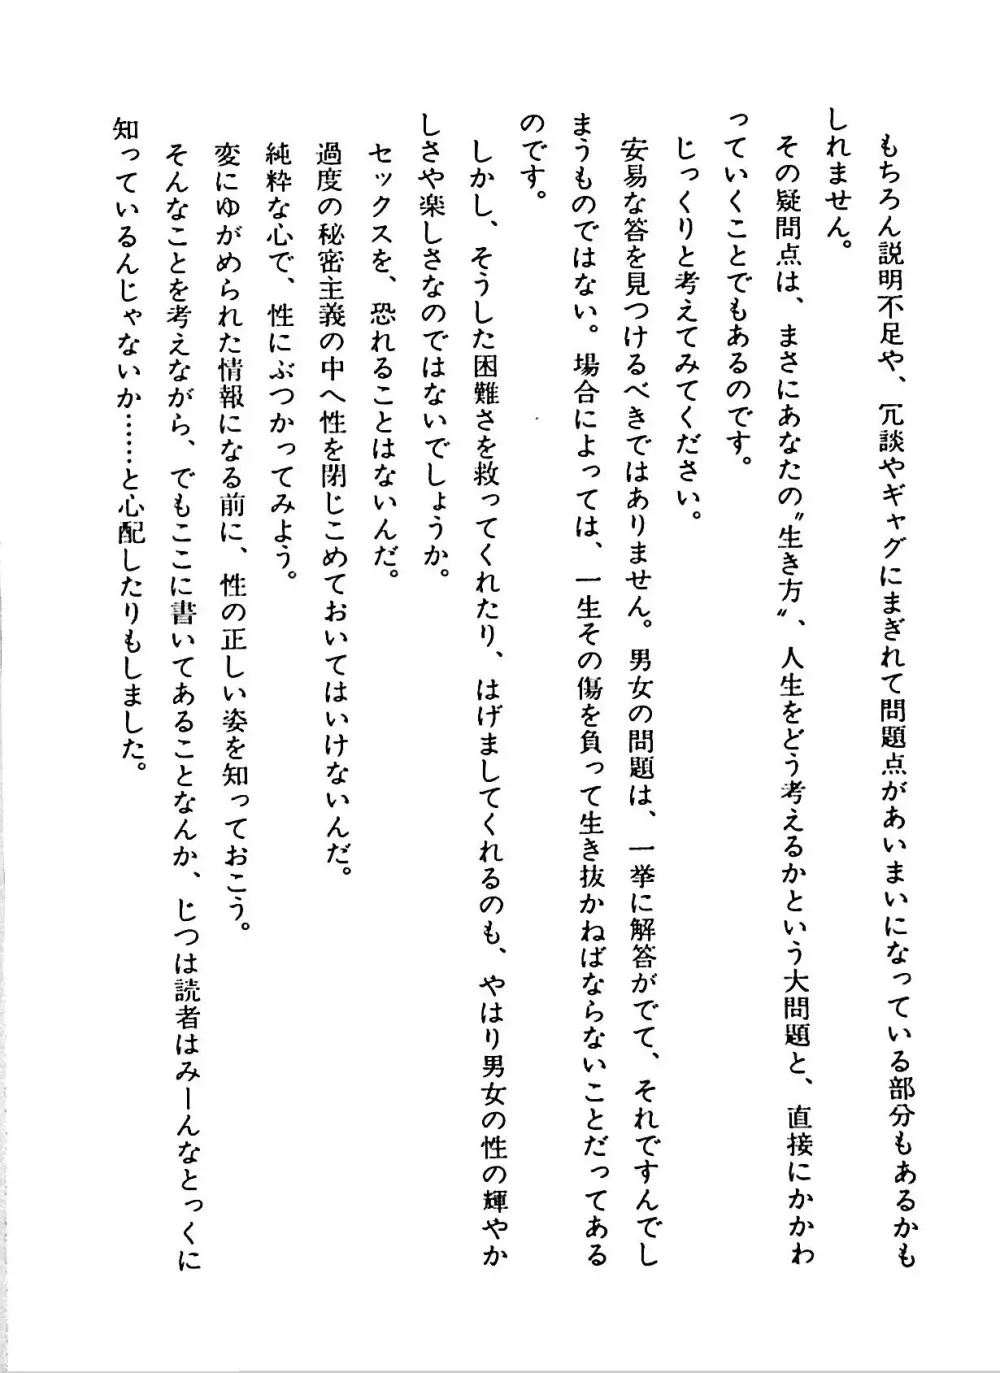 もちろん説明不足や、冗談やギャグにまぎれて問題点があいまいになっている部分もあるかも
しれません。
その疑問点は、まさにあなたの〝生き方〟、人生をどう考えるかという大問題と、直接にかかわ
っていくことでもあるのです。
じっくりと考えてみてください。
安易な答を見つけるべきではありません。男女の問題は、一挙に解答がでて、それですんでし
まうものではない。場合によっては、一生その傷を負って生き抜かねばならないことだってある
のです。
しかし、そうした困難さを救ってくれたり、はげましてくれるのも、やはり男女の性の輝やか
しさや楽しさなのではないでしょうか。
セックスを、恐れることはないんだ。
過度の秘密主義の中へ性を閉じこめておいてはいけないんだ。
純粋な心で、性にぶつかってみよう。
変にゆがめられた情報になる前に、性の正しい姿を知っておこう。
そんなことを考えながら、でもここに書いてあることなんか、じつは読者はみーんなとっくに
知っているんじゃないか……と心配したりもしました。